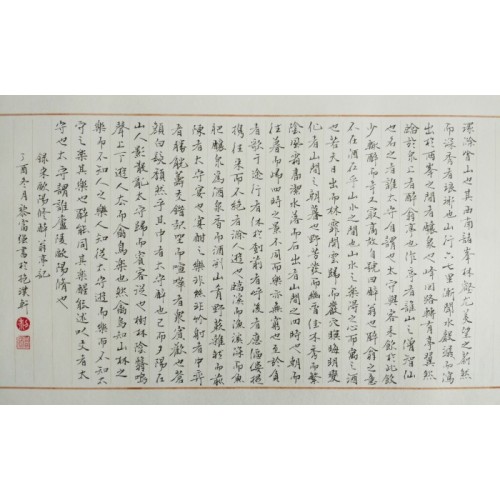 環滁皆山也其西南諸峯林壑尤美望之蔚然
而深秀者琅琊也山行六七里漸聞水聲潺而瀉
出於兩峯之間者釀泉也峰回路轉有亭翼然
臨於泉上者醉翁亭也作亭者誰山之僧智仙
也名之者誰太守自謂也太守與客來飲於此飲
少輒醉而年又最高故自號曰醉翁也醉翁之意
不在酒在乎山水之間也山水之樂得之心而寓之酒
也若夫日出而林霏開雲歸而巖穴暝晦明變
化者山間之朝暮也野芳發而幽香佳木秀而繁
陰風霜高潔水落而石出者山間之四時也朝而
往暮而歸四時之景不同而樂亦無窮也至於負
者歌于途行者休於樹前者呼後者應傴僂提
攜往來而不絕者滁人遊也臨溪而漁溪深而魚
肥釀泉爲酒泉香而酒洌山肴野蔌雜然而前
陳者太守宴也宴酣之樂非絲非竹射者中弈
者勝觥籌交錯起坐而喧嘩者衆賓歡也蒼
顏白髮頹然乎其中者太守醉也已而夕陽在
山人影散亂太守歸而賓客從也樹林陰翳鳴
聲上下遊人去而禽鳥樂也然禽鳥知山林之
樂而不知人之樂人知從太守遊而樂而不知太
守之樂其樂也醉能同其樂醒能述以文者太
守也太守謂誰廬陵歐陽修也
錄宋歐陽修醉翁亭記
丁酉冬月黎富強書於抱璞軒